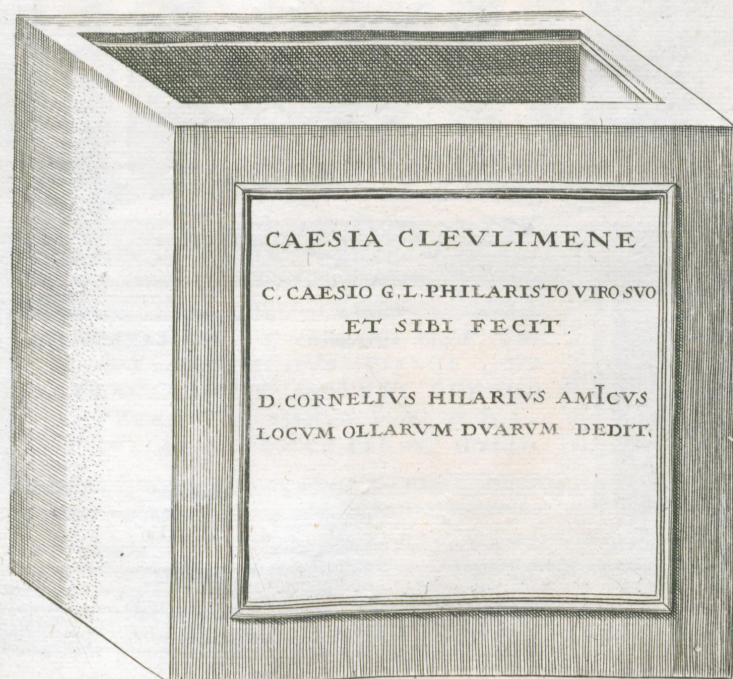 CAESIA CLEVLIMENE
C. CAESIO G. L. PHILARISTO VIRO SVO
ET SIBI FECIT.
D. CORNELIVS HILARIVS AMICVS
LOCVM OLLARVM DVARVM DEDIT.